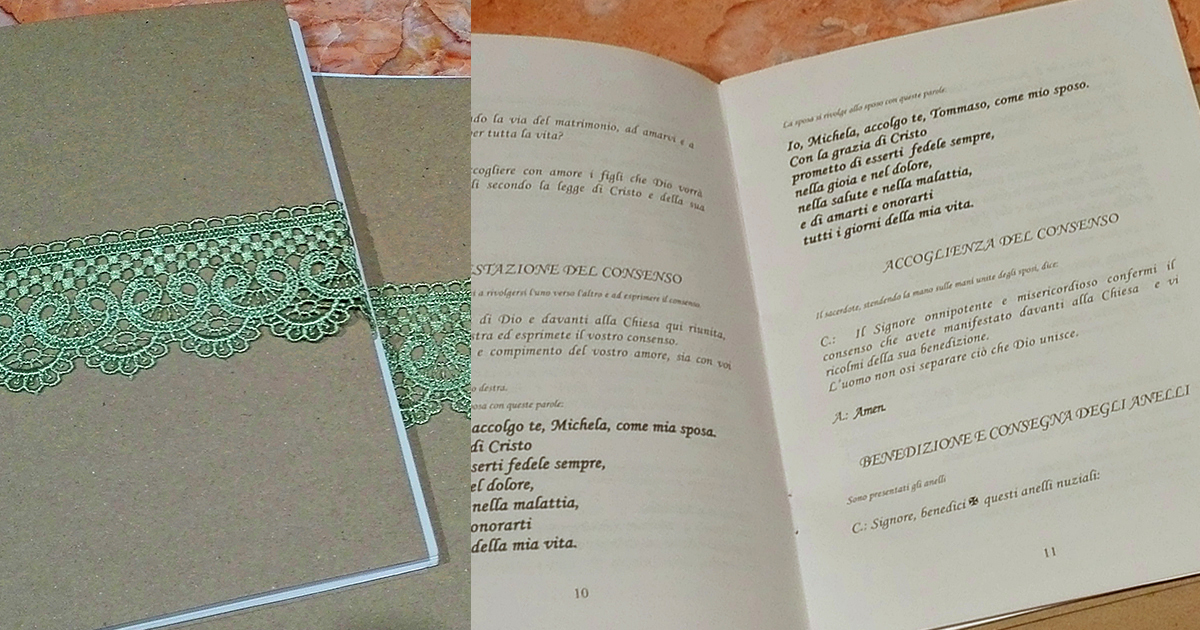 do la via del matrimonio, ad amarvi e a
er tutta la vita?
cogliere con amore i figli che Dio vorrà
li secondo la legge di Cristo e della sua
STAZIONE DEL CONSENSO
i a rivolgersi l'uno verso l'altro e ad esprimere il consenso
di Dio e davanti alla Chiesa qui riunita,
tra ed esprimete il vostro consenso.
e compimento del vostro amore, sia con voi
destra.
osa con queste parole:
accolgo te, Michela, come mia sposa.
di Cristo
serti fedele sempre,
el dolore,
nella malattia,
onorarti
della mia vita.
10
La sposa si rivolge allo sposo con queste parole:
Io, Michela, accolgo te, Tommaso, come mio sposo.
Con la grazia di Cristo
prometto di esserti fedele sempre,
nella gioia e nel dolore,
nella salute e nella malattia,
e di amarti e onorarti
tutti i giorni della mia vita.
ACCOGLIENZA DEL CONSENSO
Il sacerdote, stendendo la mano sulle mani unite degli sposi, dice:
C.: Il Signore onnipotente e misericordioso confermi il
consenso che avete manifestato davanti alla Chiesa e vi
ricolmi della sua benedizione.
L'uomo non osi separare ciò che Dio unisce.
A.: Amen.
BENEDIZIONE E CONSEGNA DEGLI ANELLI
Sono presentati gli anelli
C.: Signore, benedici ✠ questi anelli nuziali:
11